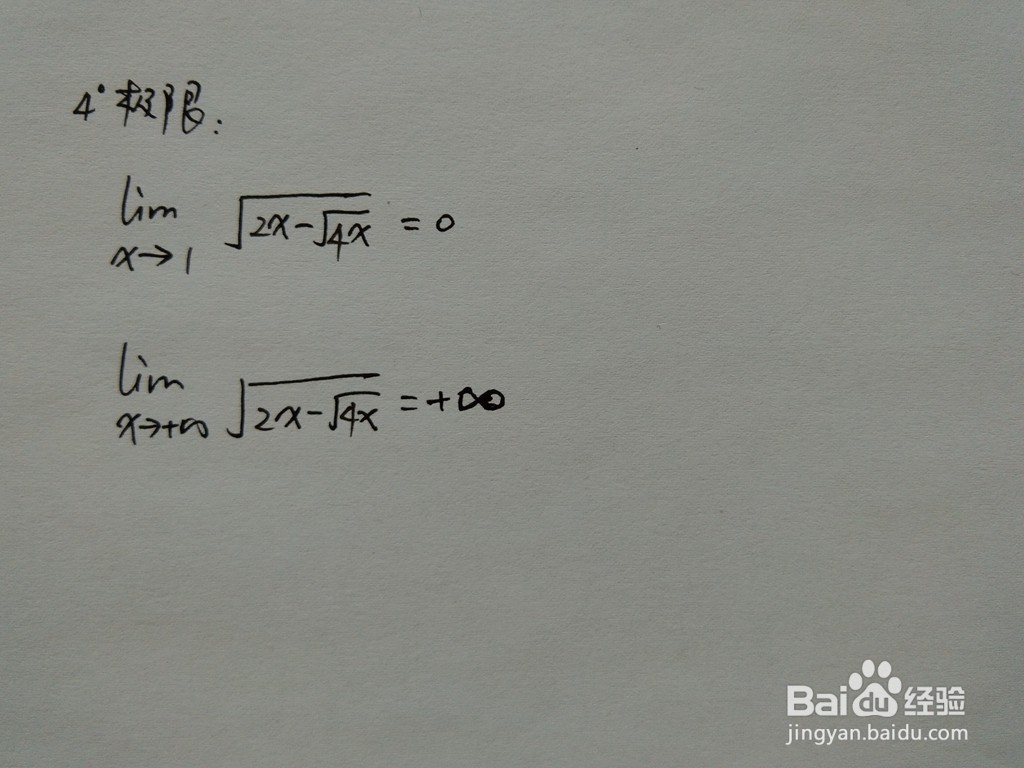 4° 极限:
lim x→1 √(2x-√4x) = 0
lim x→+∞ √(2x-√4x) = +∞
Baidu 经验
jingyan.baidu.com